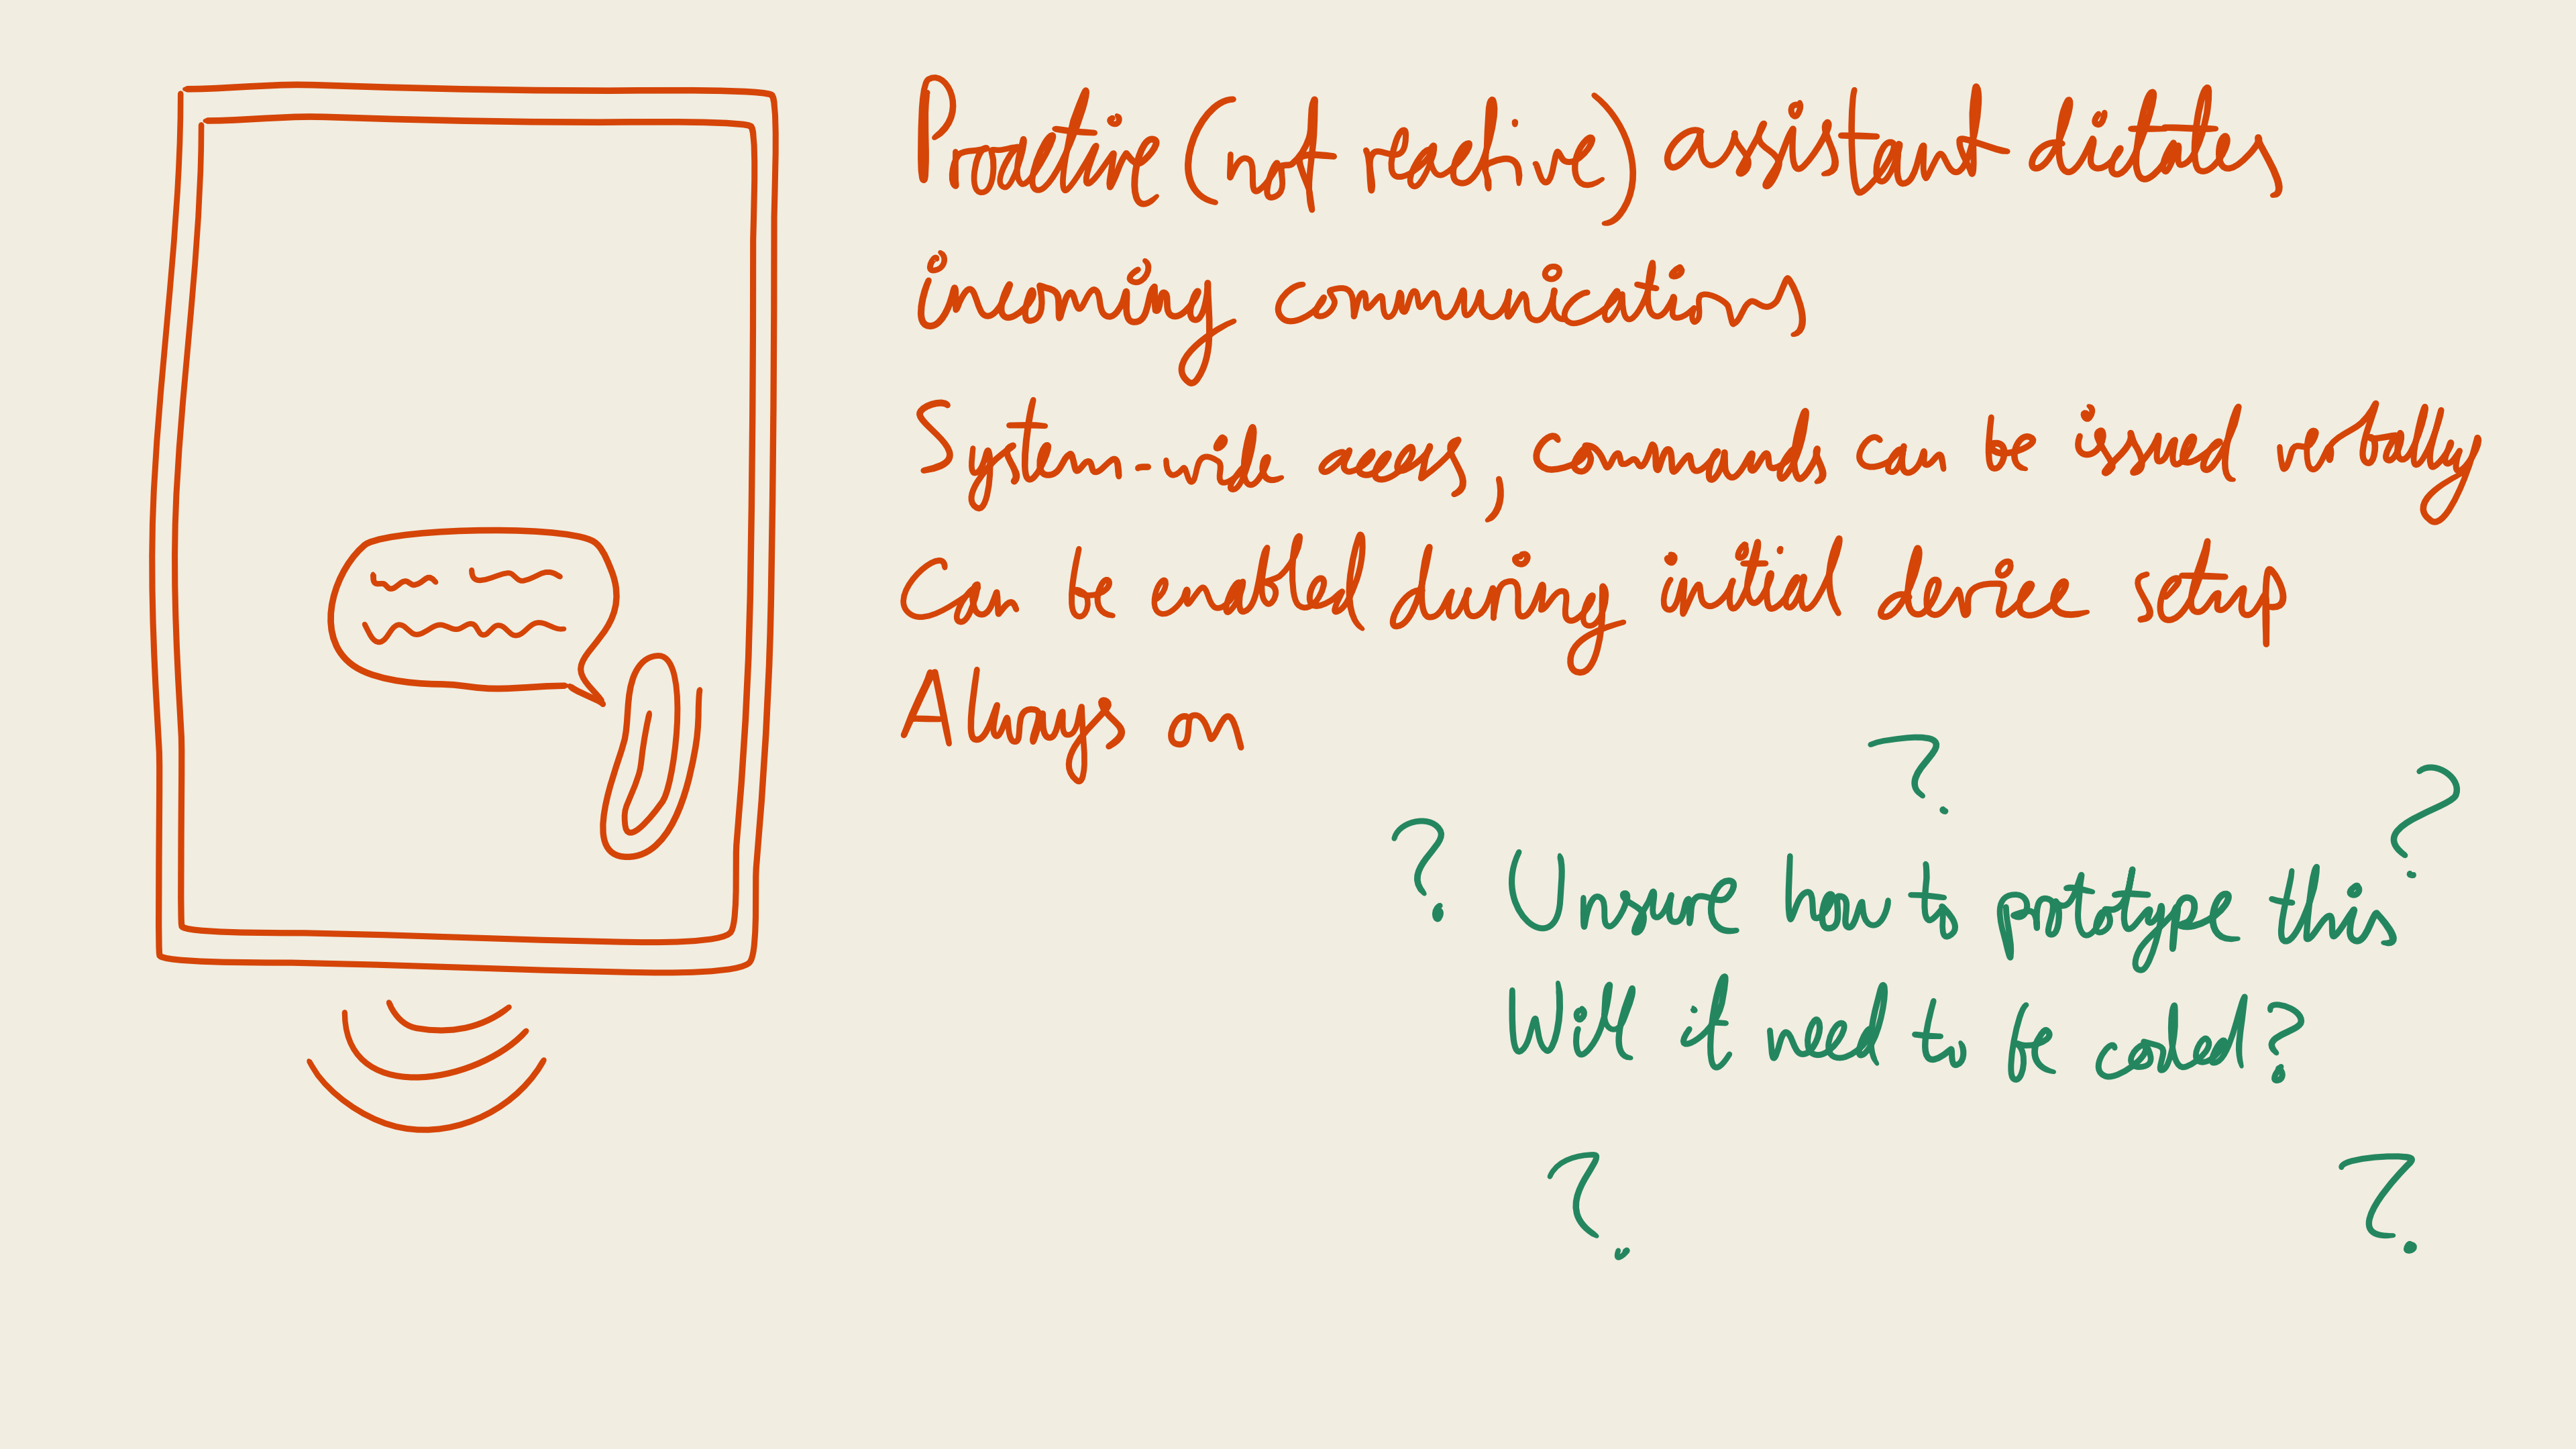 Proactive (not reactive) assistant dictates
incoming communications
System-wide access, commands can be issued verbally
Can be enabled during initial device setup
Always on
?
? ?
Unsure how to prototype this
Will it need to be coded?
? ?